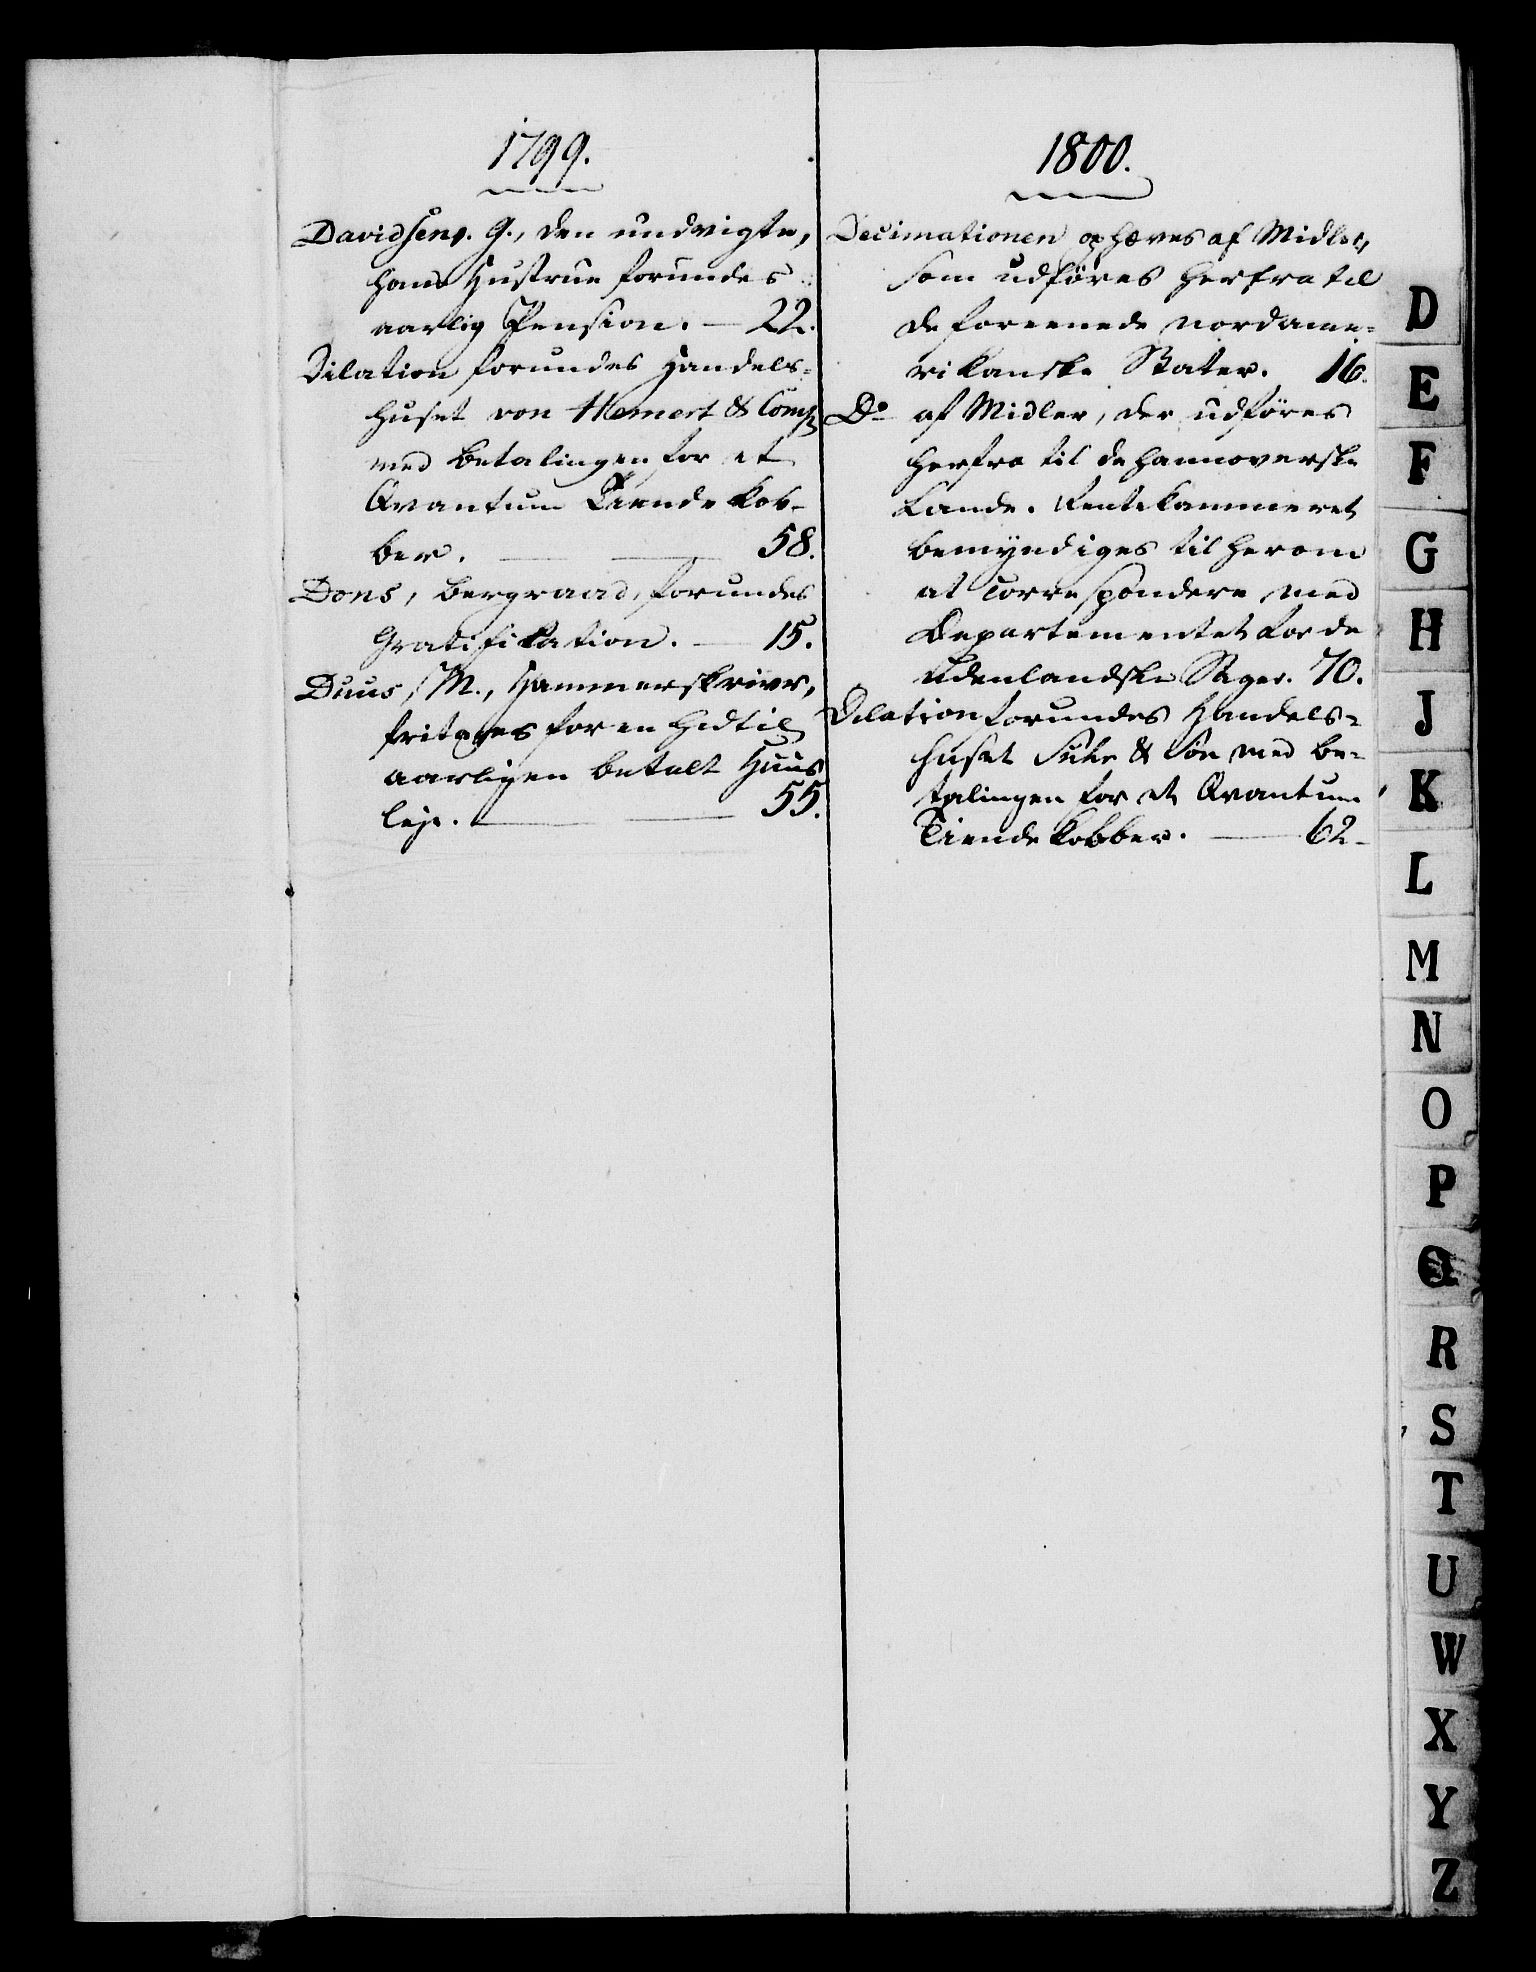 1799.
Davidsens. G., den undvigte,
hans Hustrue forundes
aarlig Pension. — 22.
Dilation forundes Handels-
huset von Hemert & Comp
med Betalingen for et
Qvantum Tiende Kob-
ber. — 58.
Dons, Bergraad, forundes
Gratifikation. — 15.
Duus, M., Hammerskriver,
fritages for en hidtil
aarligen betalt Huus
leje. — 55.
1800.
Decimationen ophæves af Midler,
som udføres herfra til
de foreenede nordame-
rikanske Stater. 16.
Do af Midler, der udføres
herfra til de hannoverske
Lande. Rentekammeret
bemyndiges til herom
at correspondere med
Departementet for de
udenlandske Sager. 70.
Dilation forundes Handels-
huset Suhr & Søn med Be-
talingen for et Qvantum
Tiende Kobber. — 62.
D
E
F
G
H
J
K
L
M
N
O
P
Q
R
S
T
U
W
X
Y
Z